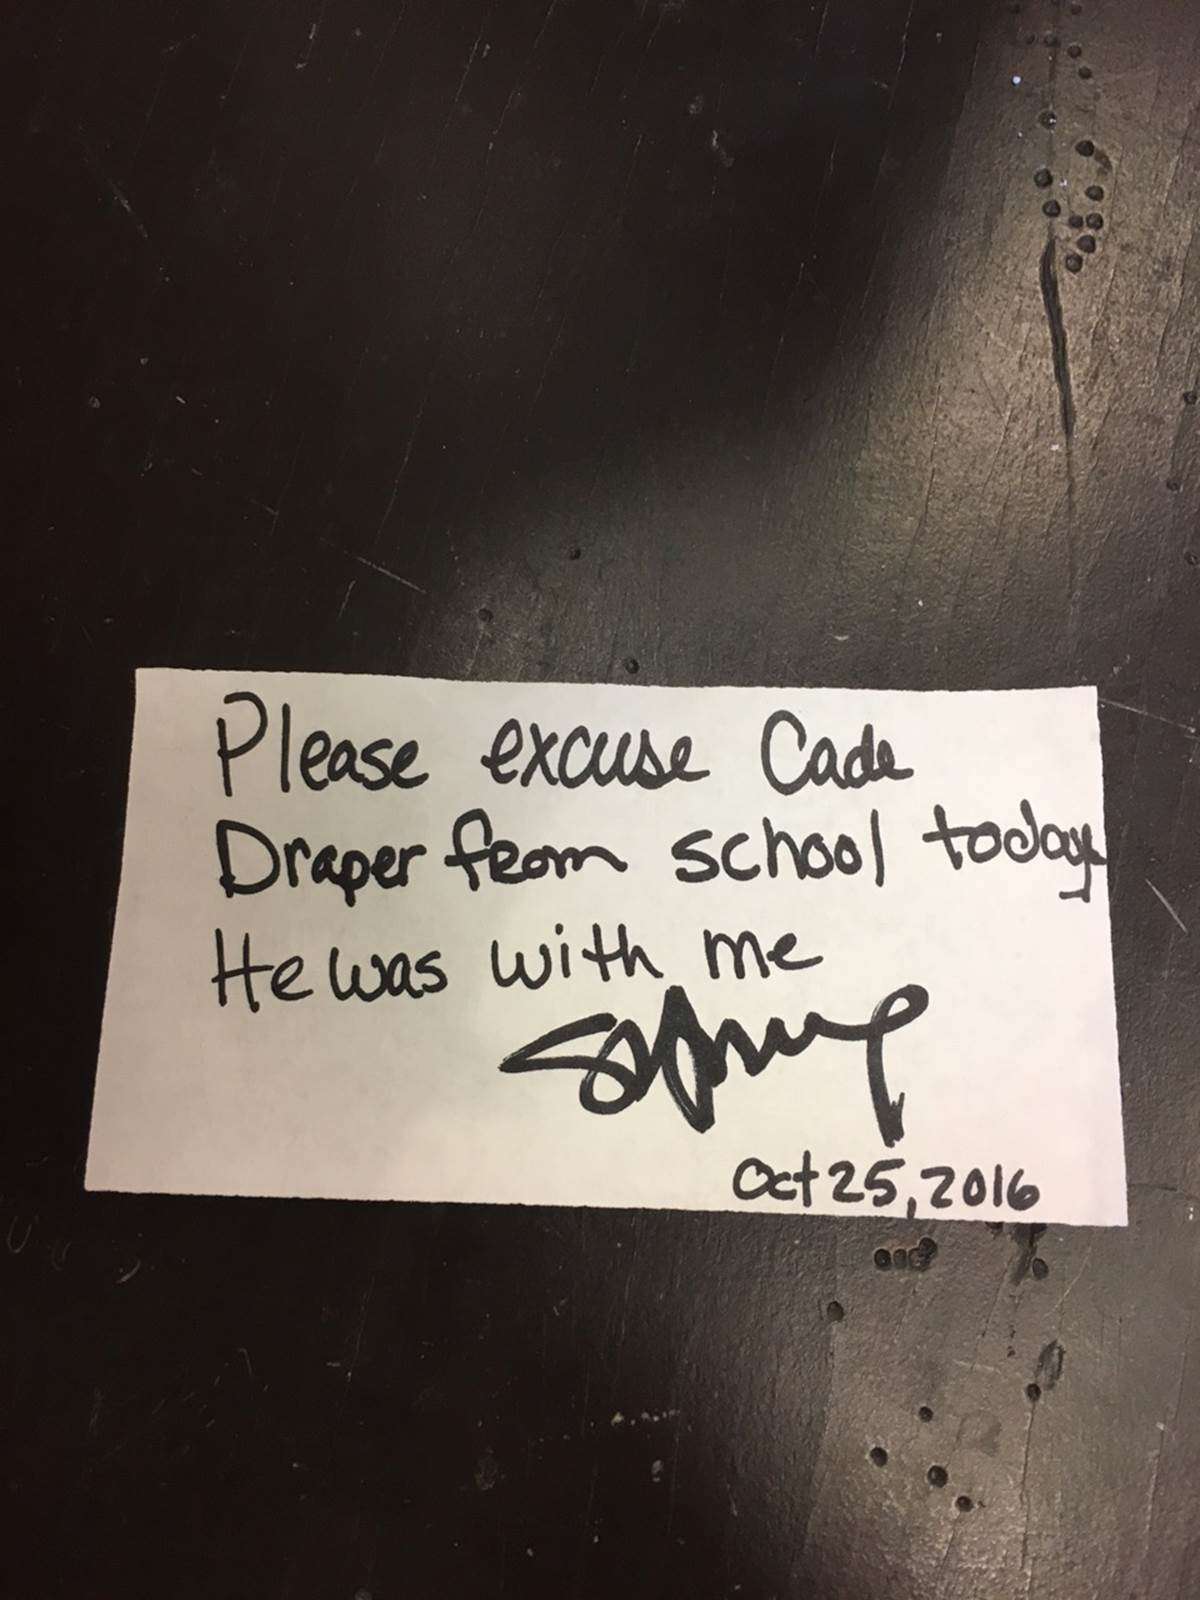 Please excuse Cade
Draper from school today
He was with me
Oct 25, 2016